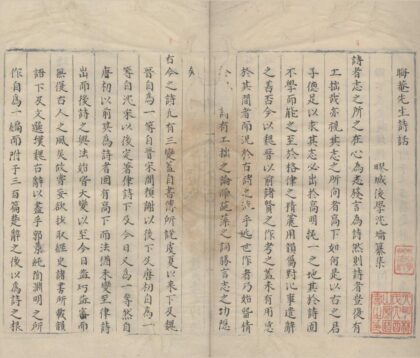 晦菴先生詩話
後學沈瀹纂集
詩者志之所之在心為志發言為詩然則詩者豈復有
工拙哉亦視其志之所向者高下如何是以古之君
子德足以求其志必出於高明純一之地其於詩固
不學而能之至於格律之精麄用韻偶對比事遣辭
之善否今以魏晉以前諸賢之作考之蓋未有用意
於其間者而況於古詩之流乎近世作者乃始留情
於詩有工拙之論而葩藻之詞勝言志之功隱
矣
古今之詩凡有三變蓋自書傳所記虞夏以來下及魏
晉自為一等自晉宋間顏謝以後下及唐初自為一
等自沈宋以後定著律詩下及今日又為一等然自
唐初以前其為詩者固有高下而法猶未變至律詩
出而後詩之與法始皆大變以至今日益巧益密而
無復古人之風矣故嘗妄欲抄取經史諸書所載韻
語下及文選漢魏古辭以盡乎郭景純陶淵明之所
作自為一編而附于三百篇楚辭之後以為詩之根